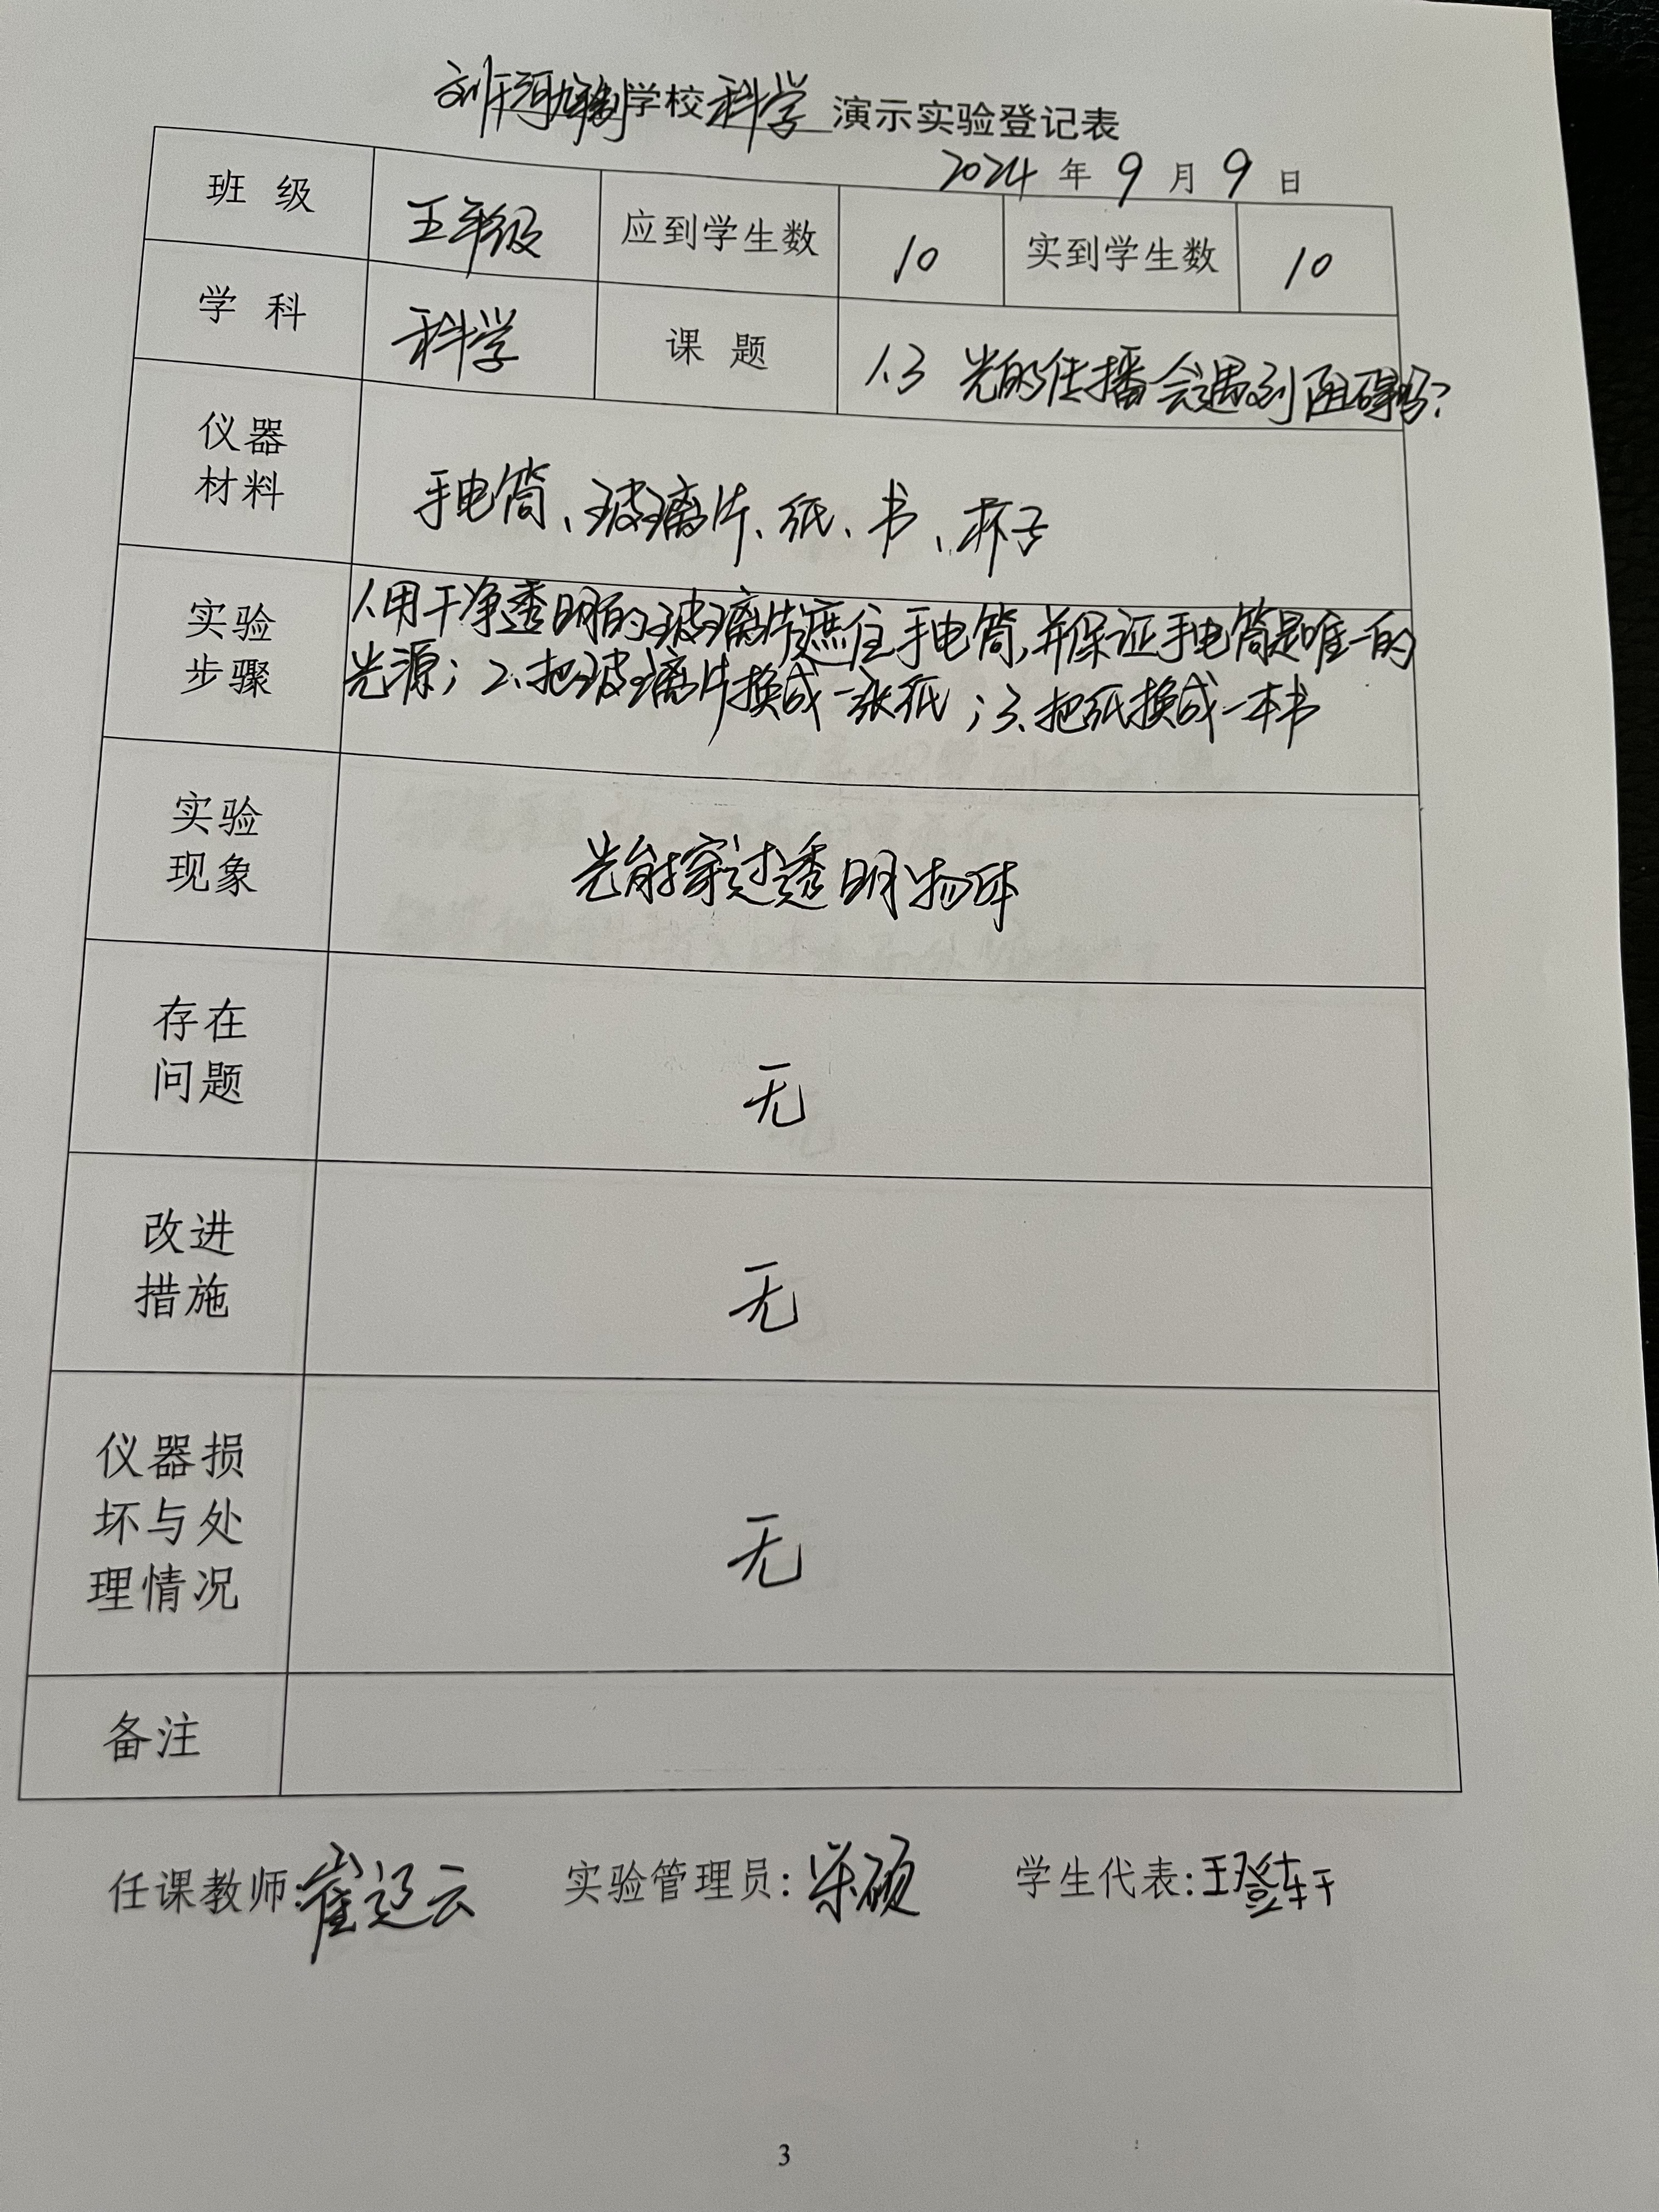 刘干河九年制学校科学演示实验登记表
2024年9月9日
班级 五年级 应到学生数 10 实到学生数 10
学科 科学 课题 1.3 光的传播会遇到阻碍吗?
仪器
材料
手电筒、玻璃片、纸、书、杯子
实验
步骤
1.用干净透明的玻璃片遮住手电筒,并保证手电筒是唯一的
光源;2.把玻璃片换成一张纸;3.把纸换成一本书
实验
现象
光能穿过透明物体
存在
问题
无
改进
措施
无
仪器损
坏与处
理情况
无
备注
任课教师:崔辽云 实验管理员:荣硕 学生代表:王登轩
3